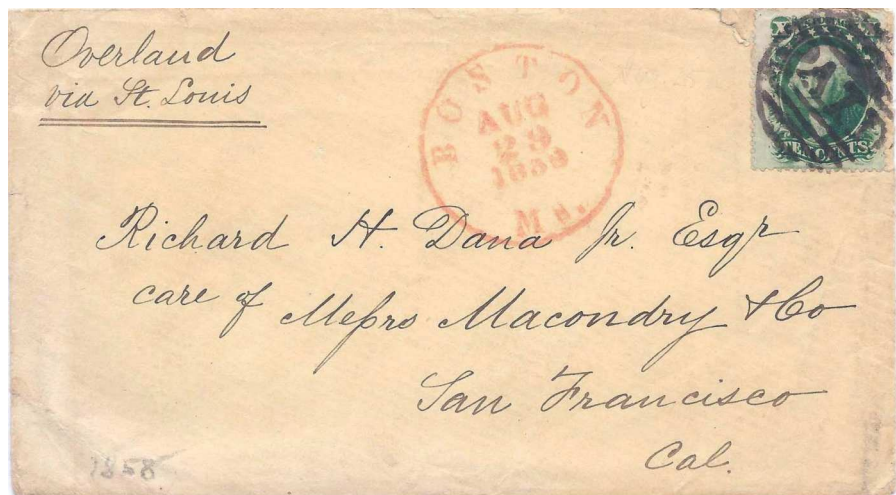 Overland
via St. Louis
BOSTON
AUG
29
1859
Ms.
PAID
TEN CENTS
Richard H. Dana Jr. Esqr
care of Meſsrs Macondry & Co
San Francisco
Cal.
1858